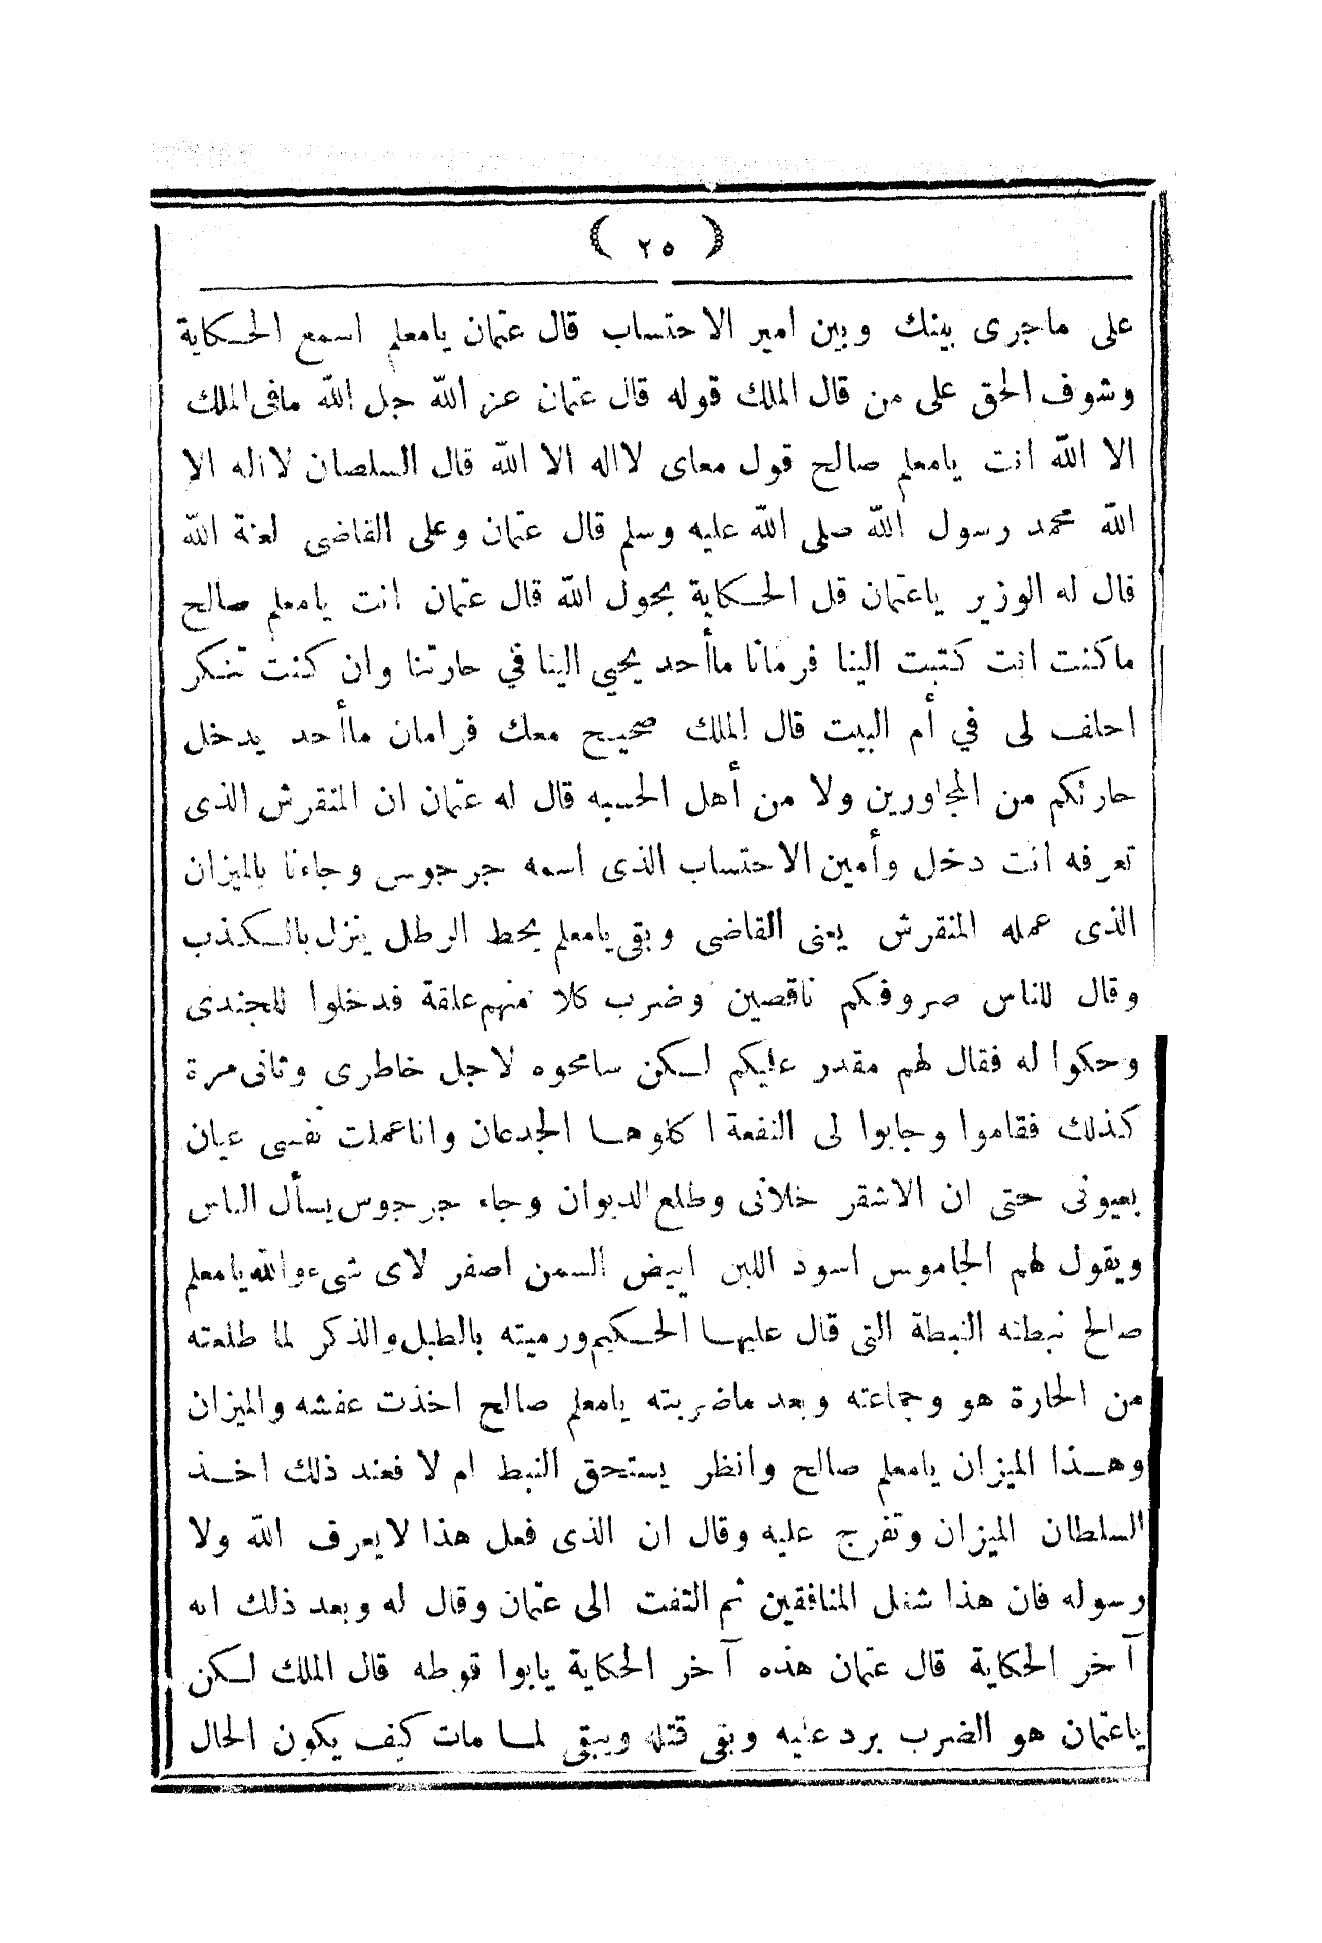 ( ٢٥ )
على ماجرى بينك وبين امير الاحتساب قال عثمان يامعلم اسمع الحكاية
وشوف الحق على من قال الملك قوله قال عثمان عز الله جل الله مافى الملك
الا الله انت يامعلم صالح قول معاى لااله الا الله قال السلصان لااله الا
الله محمد رسول الله صلى الله عليه وسلم قال عثمان وعلى القاضى لعنة الله
قال له الوزير ياعثمان قل الحكاية بحول الله قال عثمان انت يامعلم صالح
ماكنت انت كتبت الينا فرمانا ماأحد يجيى الينا في حارتنا وان كنت تنكر
احلف لى في أم البيت قال الملك صحيح معك فرامان ماأحد يدخل
حارتكم من المجاورين ولا من أهل الحسبه قال له عثمان ان المتقرش الذى
تعرفه انت دخل وأمين الاحتساب الذى اسمه جرجوس وجاءنا بالميزان
الذى عمله المنقرش يعنى القاضى وبقى يامعلم يحط الرطل ينزل بالكذب
وقال للناس صروفكم ناقصين وضرب كلا منهم علقة فدخلوا للجندى
وحكوا له فقال لهم مقدر عليكم لكن سامحوه لاجل خاطرى وثانى مرة
كذلك فقاموا وجابوا لى النفعة اكلوها الجدعان واناعملت نفسى عيان
بعيونى حتى ان الاشقر خلانى وطلع الديوان وجاء جرجوس يسأل الناس
ويقول لهم الجاموس اسود اللبن ابيض السمن اصفر لاى شىء والله يامعلم
صالح نبطته النبطة التى قال عليها الحكيم ورميته بالطبل والذكر لما طلعته
من الحارة هو وجماعته وبعد ماضربته يامعلم صالح اخذت عفشه والميزان
وهذا الميزان يامعلم صالح وانظر يستحق النبط ام لا فعند ذلك اخذ
السلطان الميزان وتفرج عليه وقال ان الذى فعل هذا لايعرف الله ولا
رسوله فان هذا شغل المنافقين ثم التفت الى عثمان وقال له وبعد ذلك ايه
آخر الحكاية قال عثمان هذه آخر الحكاية يابوا قوطه قال الملك لكن
ياعثمان هو الضرب يرد عليه وبقى قتله ويبقى لما مات كيف يكون الحال